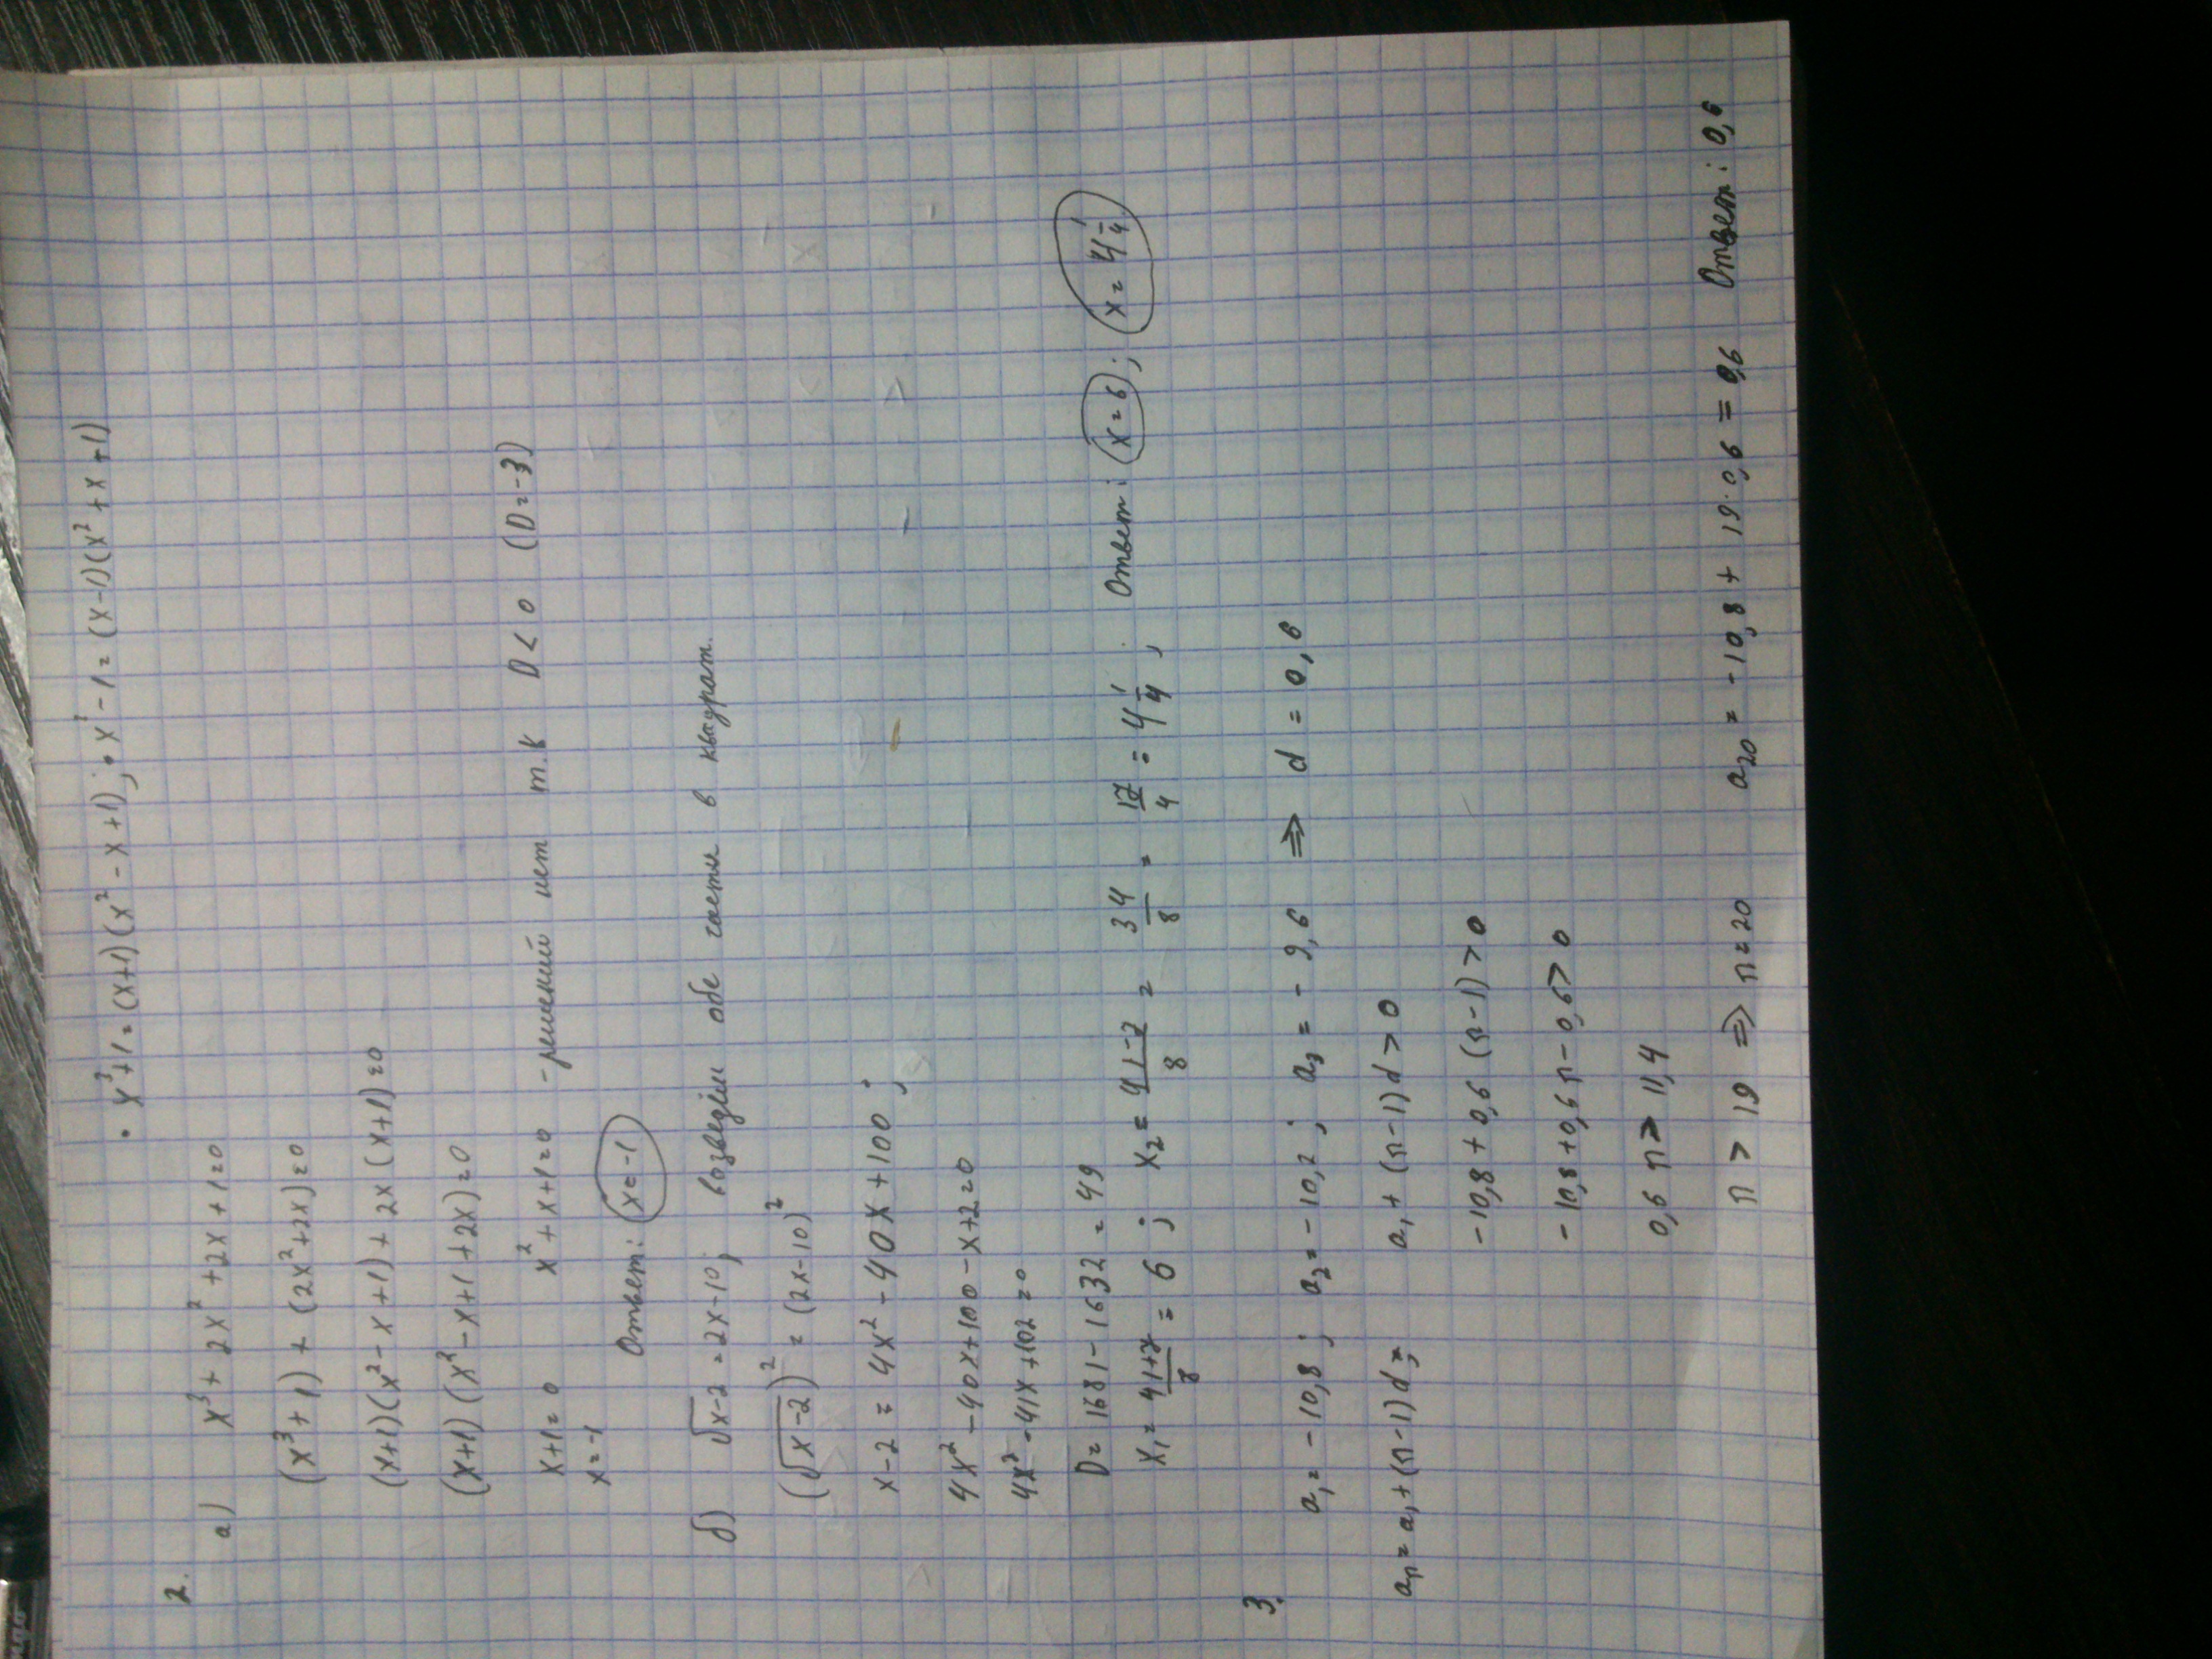 • x³+1=(x+1)(x²-x+1); • x³-1=(x-1)(x²+x+1)
2.
а) x³+2x²+2x+1=0
(x³+1)+(2x²+2x)=0
(x+1)(x²-x+1)+2x(x+1)=0
(x+1)(x²-x+1+2x)=0
x+1=0 x²+x+1=0 - решений нет т.к D<0 (D=-3)
x=-1
Ответ: x=-1
б) √x-2=2x-10; возведём обе части в квадрат.
(√x-2)²=(2x-10)²
x-2=4x²-40x+100;
4x²-40x+100-x+2=0
4x²-41x+102=0
D=1681-1632=49
x₁=41+7/8=6; x₂=41-7/8=34/8=17/4=4 1/4; Ответ: x=6; x=4 1/4
3. a₁=-10,8; a₂=-10,2; a₃=-9,6 ⇒ d=0,6
aₙ=a₁+(n-1)d; a₁+(n-1)d>0
-10,8+0,6(n-1)>0
-10,8+0,6n-0,6>0
0,6n>11,4
n>19 ⇒ n=20 a₂₀=-10,8+19·0,6=0,6 Ответ: 0,6